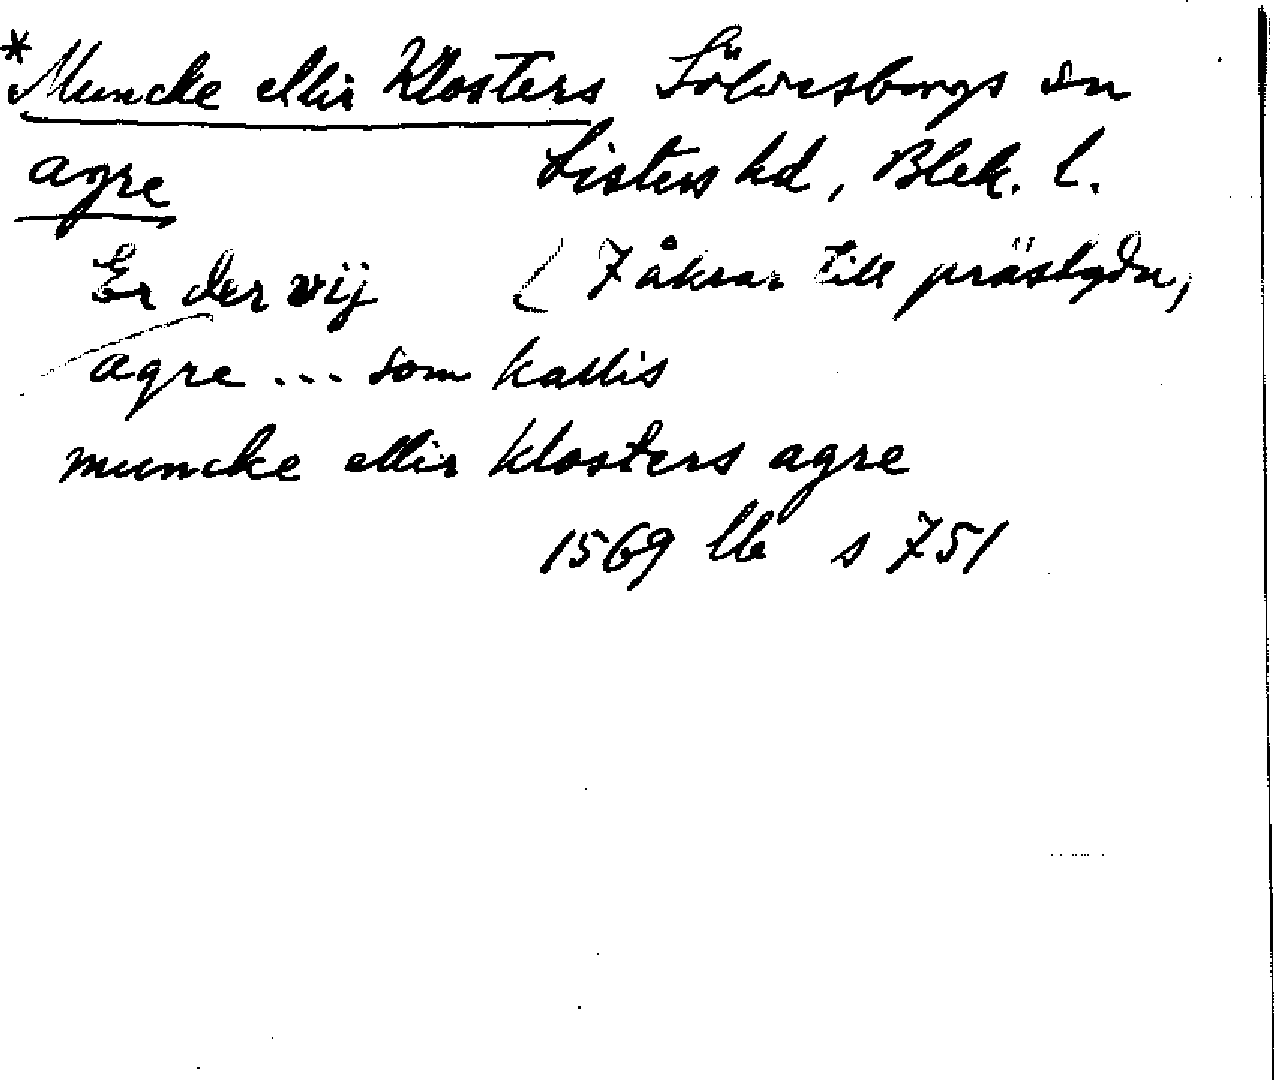 *Muncke ellir Klosters Sölvesborgs sn
agre Listers hd, Blek. l.
Er der vij ( 7 åkrar till prästgdn,
agre ... som kallis
muncke ellir klosters agre
1569 lb s 751